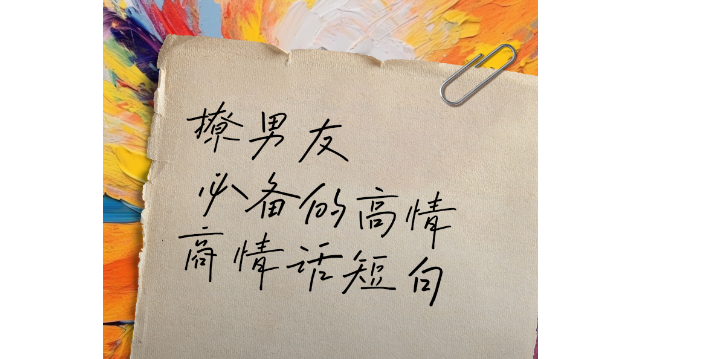 撩男友
必备的高情
商情话短句